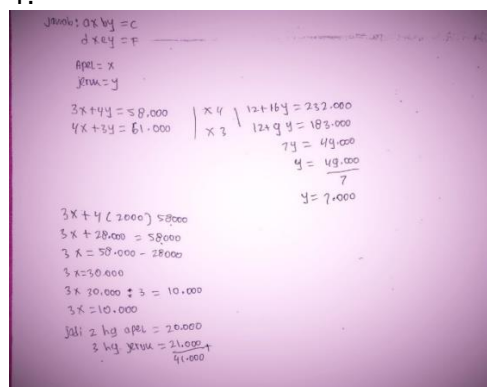 Jawab: ax by = C
dxey = F
Apel = x
jeruk = y
3x + 4y = 58.000 | x 4 | 12 + 16y = 232.000
4x + 3y = 61.000 | x 3 | 12 + 9 y = 183.000
7y = 49.000
y = 49.000
7
y = 7.000
3x + 4 (2000) 58000
3x + 28.000 = 58000
3x = 58.000 - 28000
3x = 30.000
3x 30.000 : 3 = 10.000
3x = 10.000
Jadi 2 kg apel = 20.000
3 kg jeruk = 21.000 +
41.000